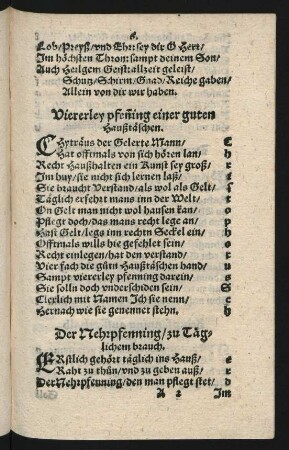 Lob/Preyß/vnd Ehr: sey dir O Herr/
Im höchsten Thron: sampt deinem Son/
Auch Heilgem Geist: allzeit geleist/
Schutz/Schirm/Gnad/Reiche gaben/
Allein von dir wir haben.
Viererley pfeñing einer guten
Haußtäschen.
CHyträus der Gelerte Mann/ C
Hat offtmals von sich hören lan/ h
Recht Haußhalten ein Kunst sey groß/ r
Im huy/sie nicht sich lernen laß/
Sie braucht Verstand/als wol als Gelt/ s
Täglich erfehrt mans inn der Welt/ t
On Gelt man nicht wol hausen kan/
Pflegt doch/das mans recht lege an/ p
Hast Gelt/legs inn rechten Seckel ein/ h
Offtmals wills hie gefehlet sein/
Recht einlegen/hat den verstand/ r
Vier fach die gütn Haußtäschen hand/
Sampt viererley pfenning darein/ s
Sie solln doch vnderschiden sein/ S
Clerlich mit Namen Ich sie nenn/ c
Hernach wie sie genennet stehn. h
Der Nehrpfenning/zu Täg-
lichem brauch.
ERstlich gehört täglich ins Hauß/ e
Raht zu thün/vnd zu geben auß/ r
Der Nehrpfenning/den man pflegt stet/ d
A 2 Im